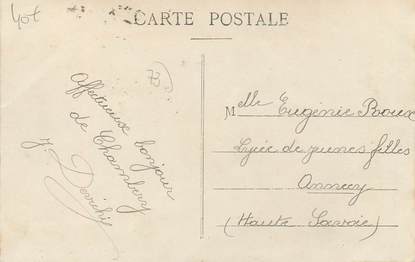 40f
CARTE POSTALE
73
Affectueux bonjour
de Chambéry
Melle Eugénie Roux
Lycée de jeunes filles
Annecy
(Haute Savoie)